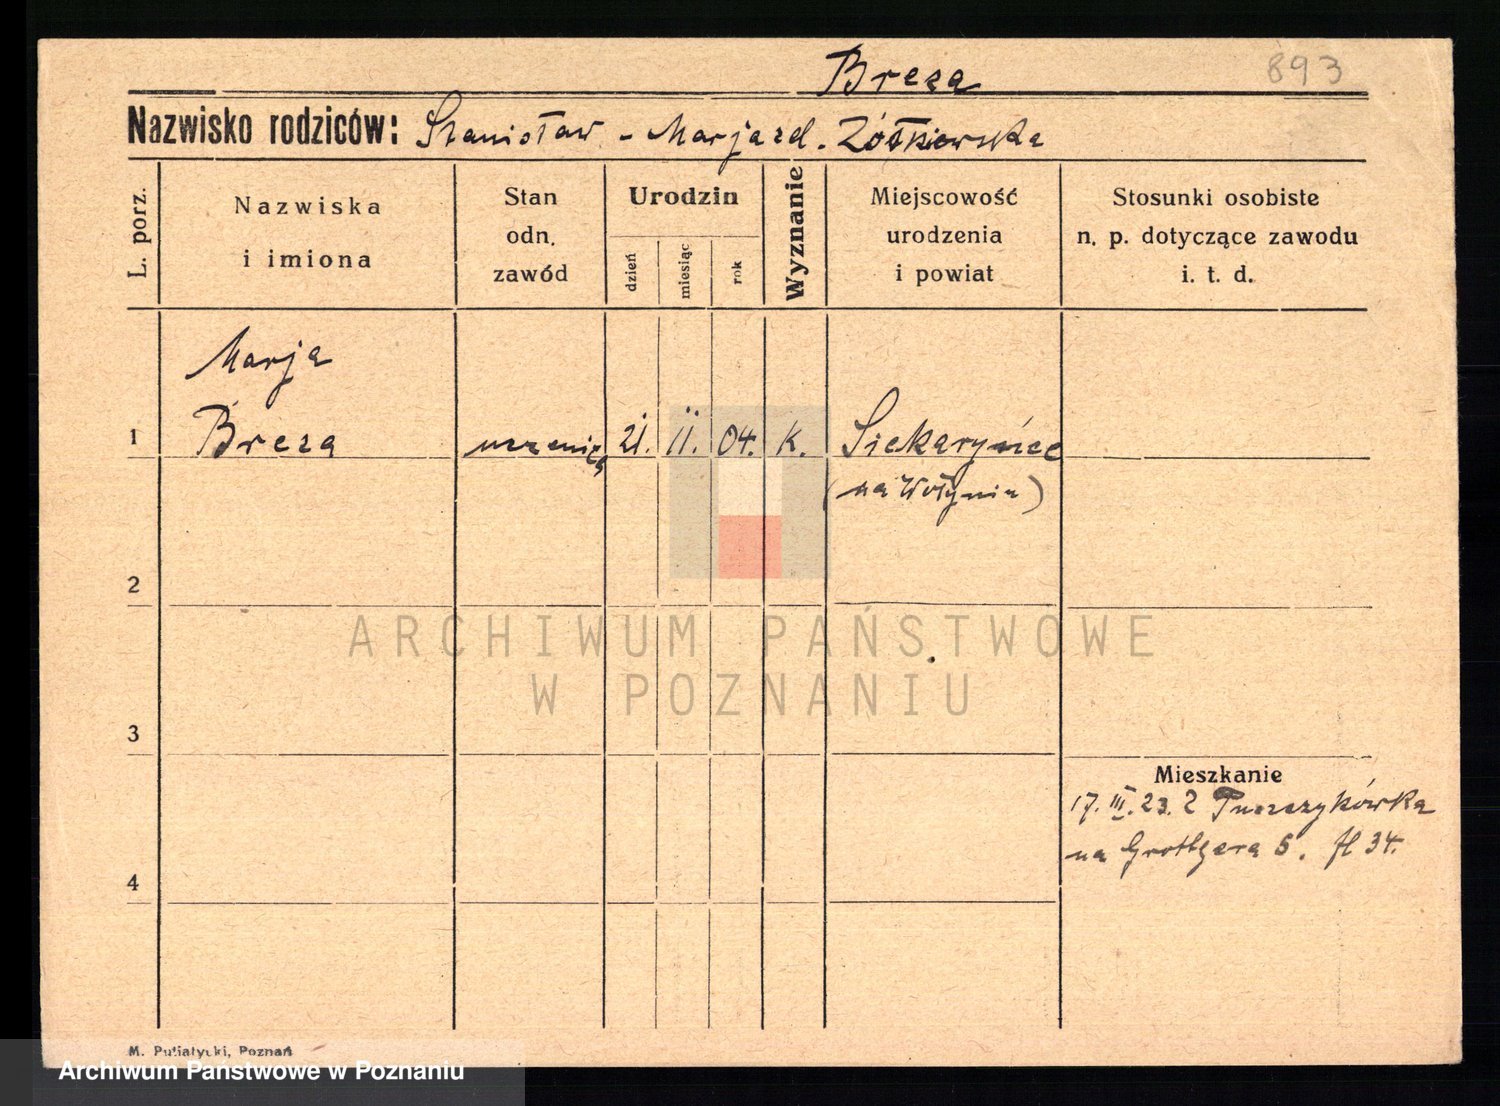 Breza 893
Nazwisko rodziców: Stanisław - Marja zd. Żółkiewska
L. porz.
Nazwiska
i imiona
Stan
odn.
zawód
Urodzin
dzień
miesiąc
rok
Wyznanie
Miejscowość
urodzenia
i powiat
Stosunki osobiste
n. p. dotyczące zawodu
i. t. d.
Marja
1 Breza uczenica 21. II. 04. K. Siekaryńce
(na Wołyniu)
2
ARCHIWUM PAŃSTWOWE
W POZNANIU
3
Mieszkanie
17. III. 23. Z
na Grottgera 5. 34.
4
M. Putiatycki, Poznań
Archiwum Państwowe w Poznaniu